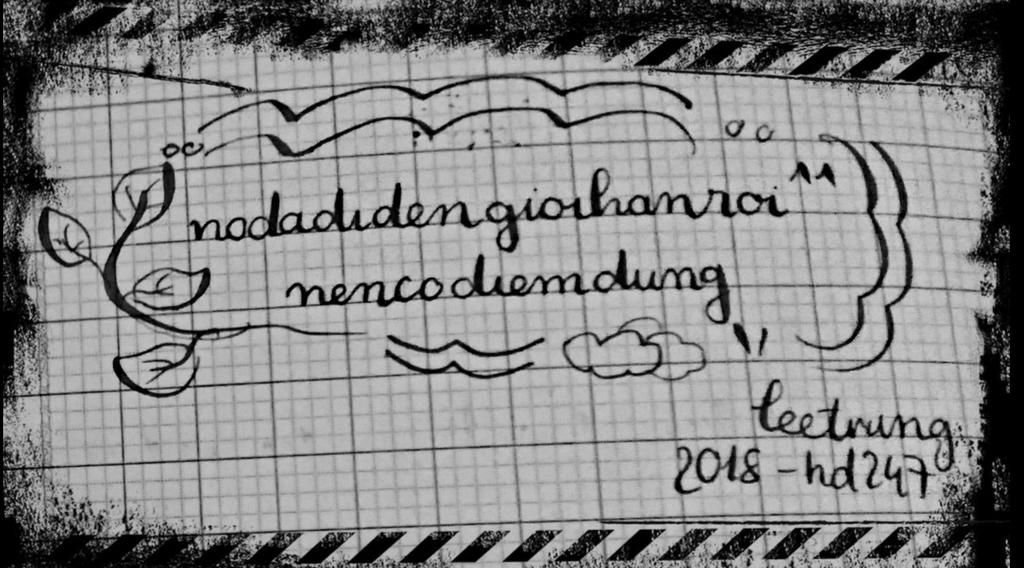 nodadidengioihanroi
nencodiemdung
leetrung
2018 - hd247